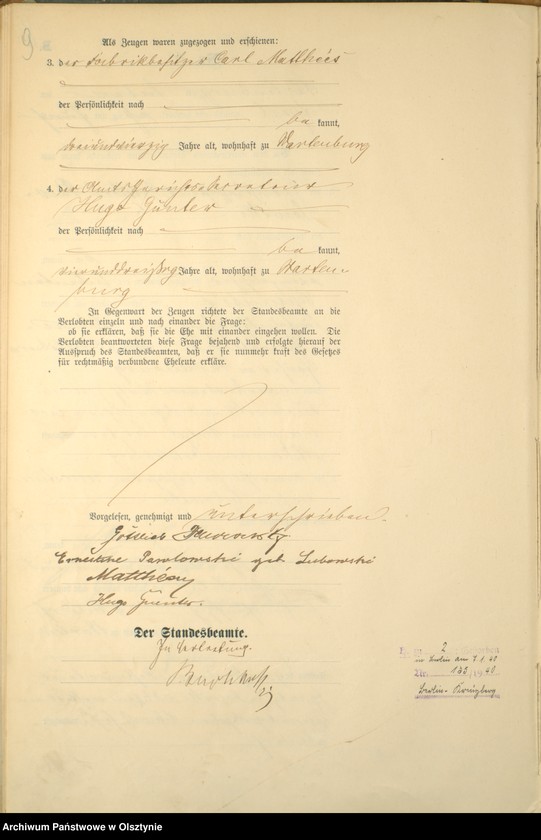 9
Als Zeugen waren zugezogen und erschienen:
3. der Fabrikbesitzer Carl Matthées
der Persönlichkeit nach
bekannt,
dreiundvierzig Jahre alt, wohnhaft zu Wartenburg
4. der Amtsgerichtssekretair
Hugo Günter
der Persönlichkeit nach
bekannt,
vierunddreißig Jahre alt, wohnhaft zu Warten-
burg
In Gegenwart der Zeugen richtete der Standesbeamte an die
Verlobten einzeln und nach einander die Frage:
ob sie erklären, daß sie die Ehe mit einander eingehen wollen. Die
Verlobten beantworteten diese Frage bejahend und erfolgte hierauf der
Ausspruch des Standesbeamten, daß er sie nunmehr kraft des Gesetzes
für rechtmäßig verbundene Eheleute erkläre.
Vorgelesen, genehmigt und unterschrieben.
Gottlieb
Ernestine Pawlowski geb Lubowski
Matthées
Hugo Guenter.
Der Standesbeamte.
In Vertretung.
2
in Berlin am 7.1.48
Nr. 133/1948
Berlin-Kreuzberg
Archiwum Państwowe w Olsztynie